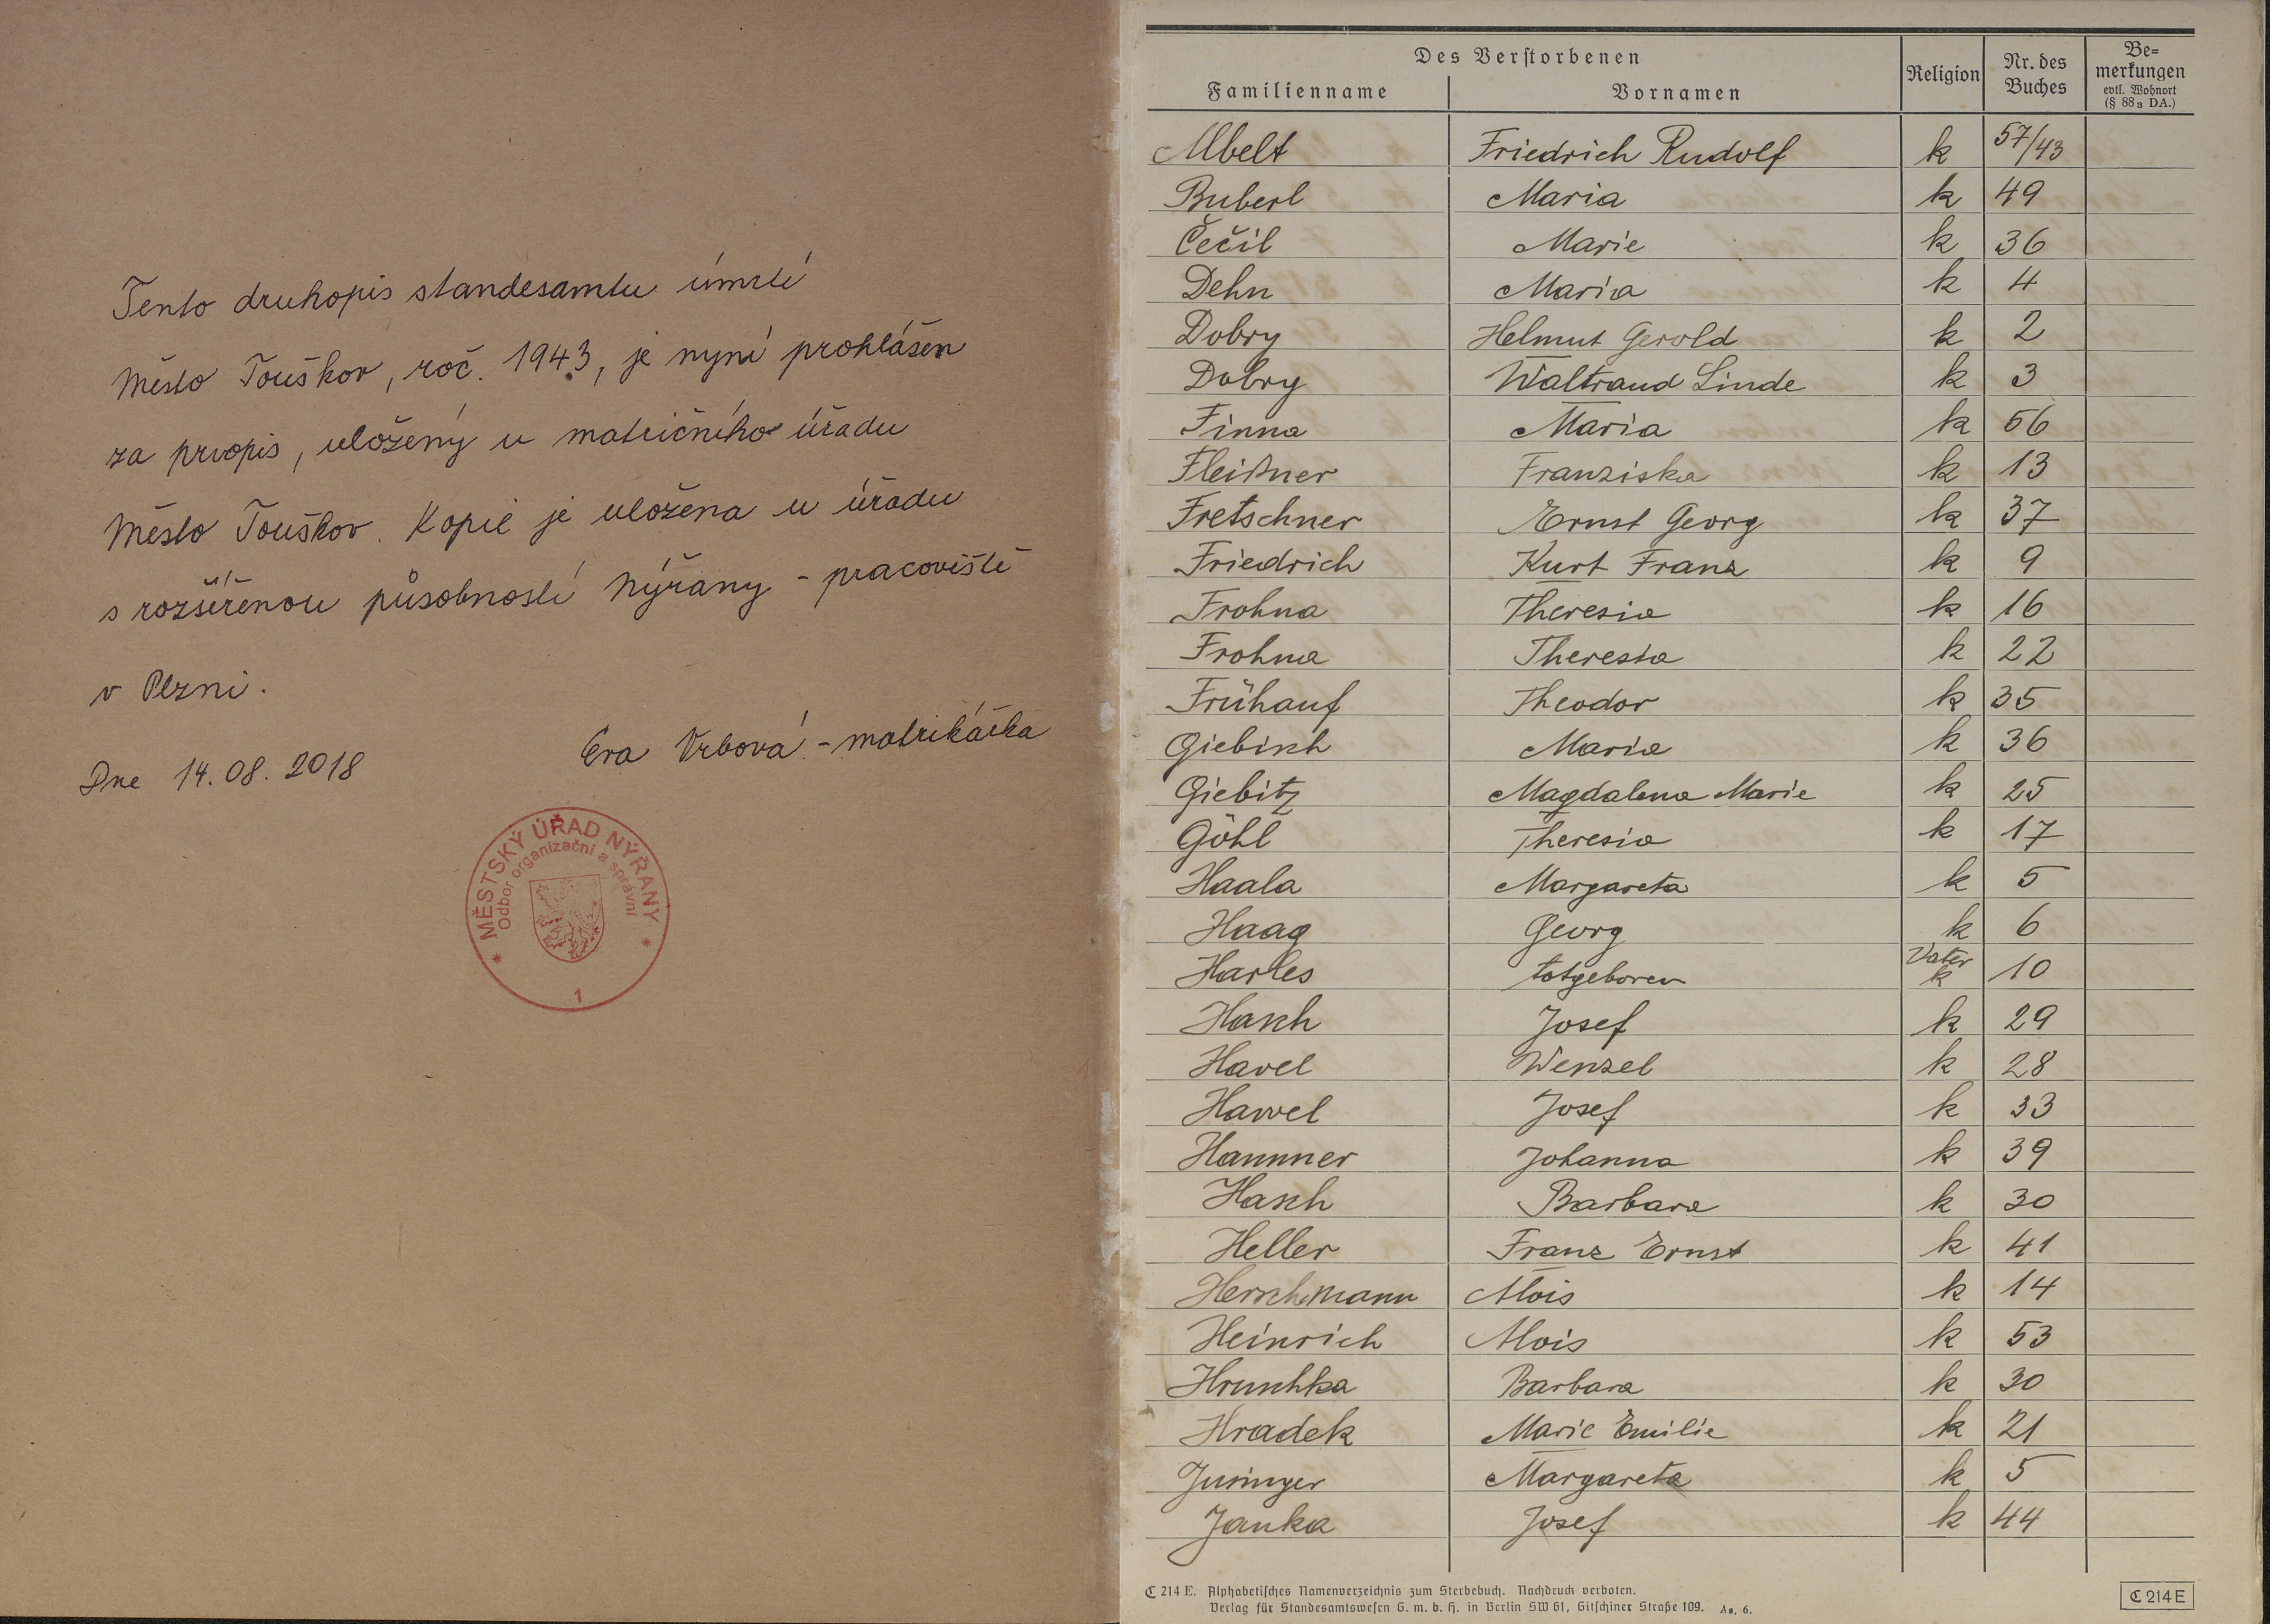 Tento druhopis standesamtu úmrtí
Město Touškov, roč. 1943, je nyní prohlášen
za prvopis, uložený u matričního úřadu
Město Touškov. Kopie je uložena u úřadu
s rozšířenou působností Nýřany - pracoviště
v Plzni.
Eva Vrbová - matrikářka
Dne 14.08.2018
MĚSTSKÝ ÚŘAD NÝŘANY
Odbor organizační a správní
1
Des Verstorbenen
Familienname Vornamen Religion Nr. des Buches Be=merkungen evtl. Wohnort (§ 88a DA.)
Albelt Friedrich Rudolf k 57/43
Buberl Maria k 49
Čečil Marie k 36
Dehn Maria k 4
Dobry Helmut Gerold k 2
Dobry Waltraud Linde k 3
Finna Maria k 56
Fleißner Franziska k 13
Fretschner Ernst Georg k 37
Friedrich Kurt Franz k 9
Frohna Theresia k 16
Frohna Theresia k 22
Frühauf Theodor k 35
Giebisch Maria k 36
Giebitz Magdalena Marie k 25
Göhl Theresia k 17
Haala Margareta k 5
Haag Georg k 6
Harles totgeboren Vater k 10
Hasch Josef k 29
Havel Wenzel k 28
Hawel Josef k 33
Hammer Johanna k 39
Hasch Barbara k 30
Heller Franz Ernst k 41
Herschmann Alois k 14
Heinrich Alois k 53
Hruschka Barbara k 30
Hradek Marie Emilie k 21
Margareta k 5
Janka Josef k 44
C 214 E. Alphabetisches Namenverzeichnis zum Sterbebuch. Nachdruck verboten.
Verlag für Standesamtswesen G. m. b. H. in Berlin SW 61, Gitschiner Straße 109. As. 6.
C 214 E